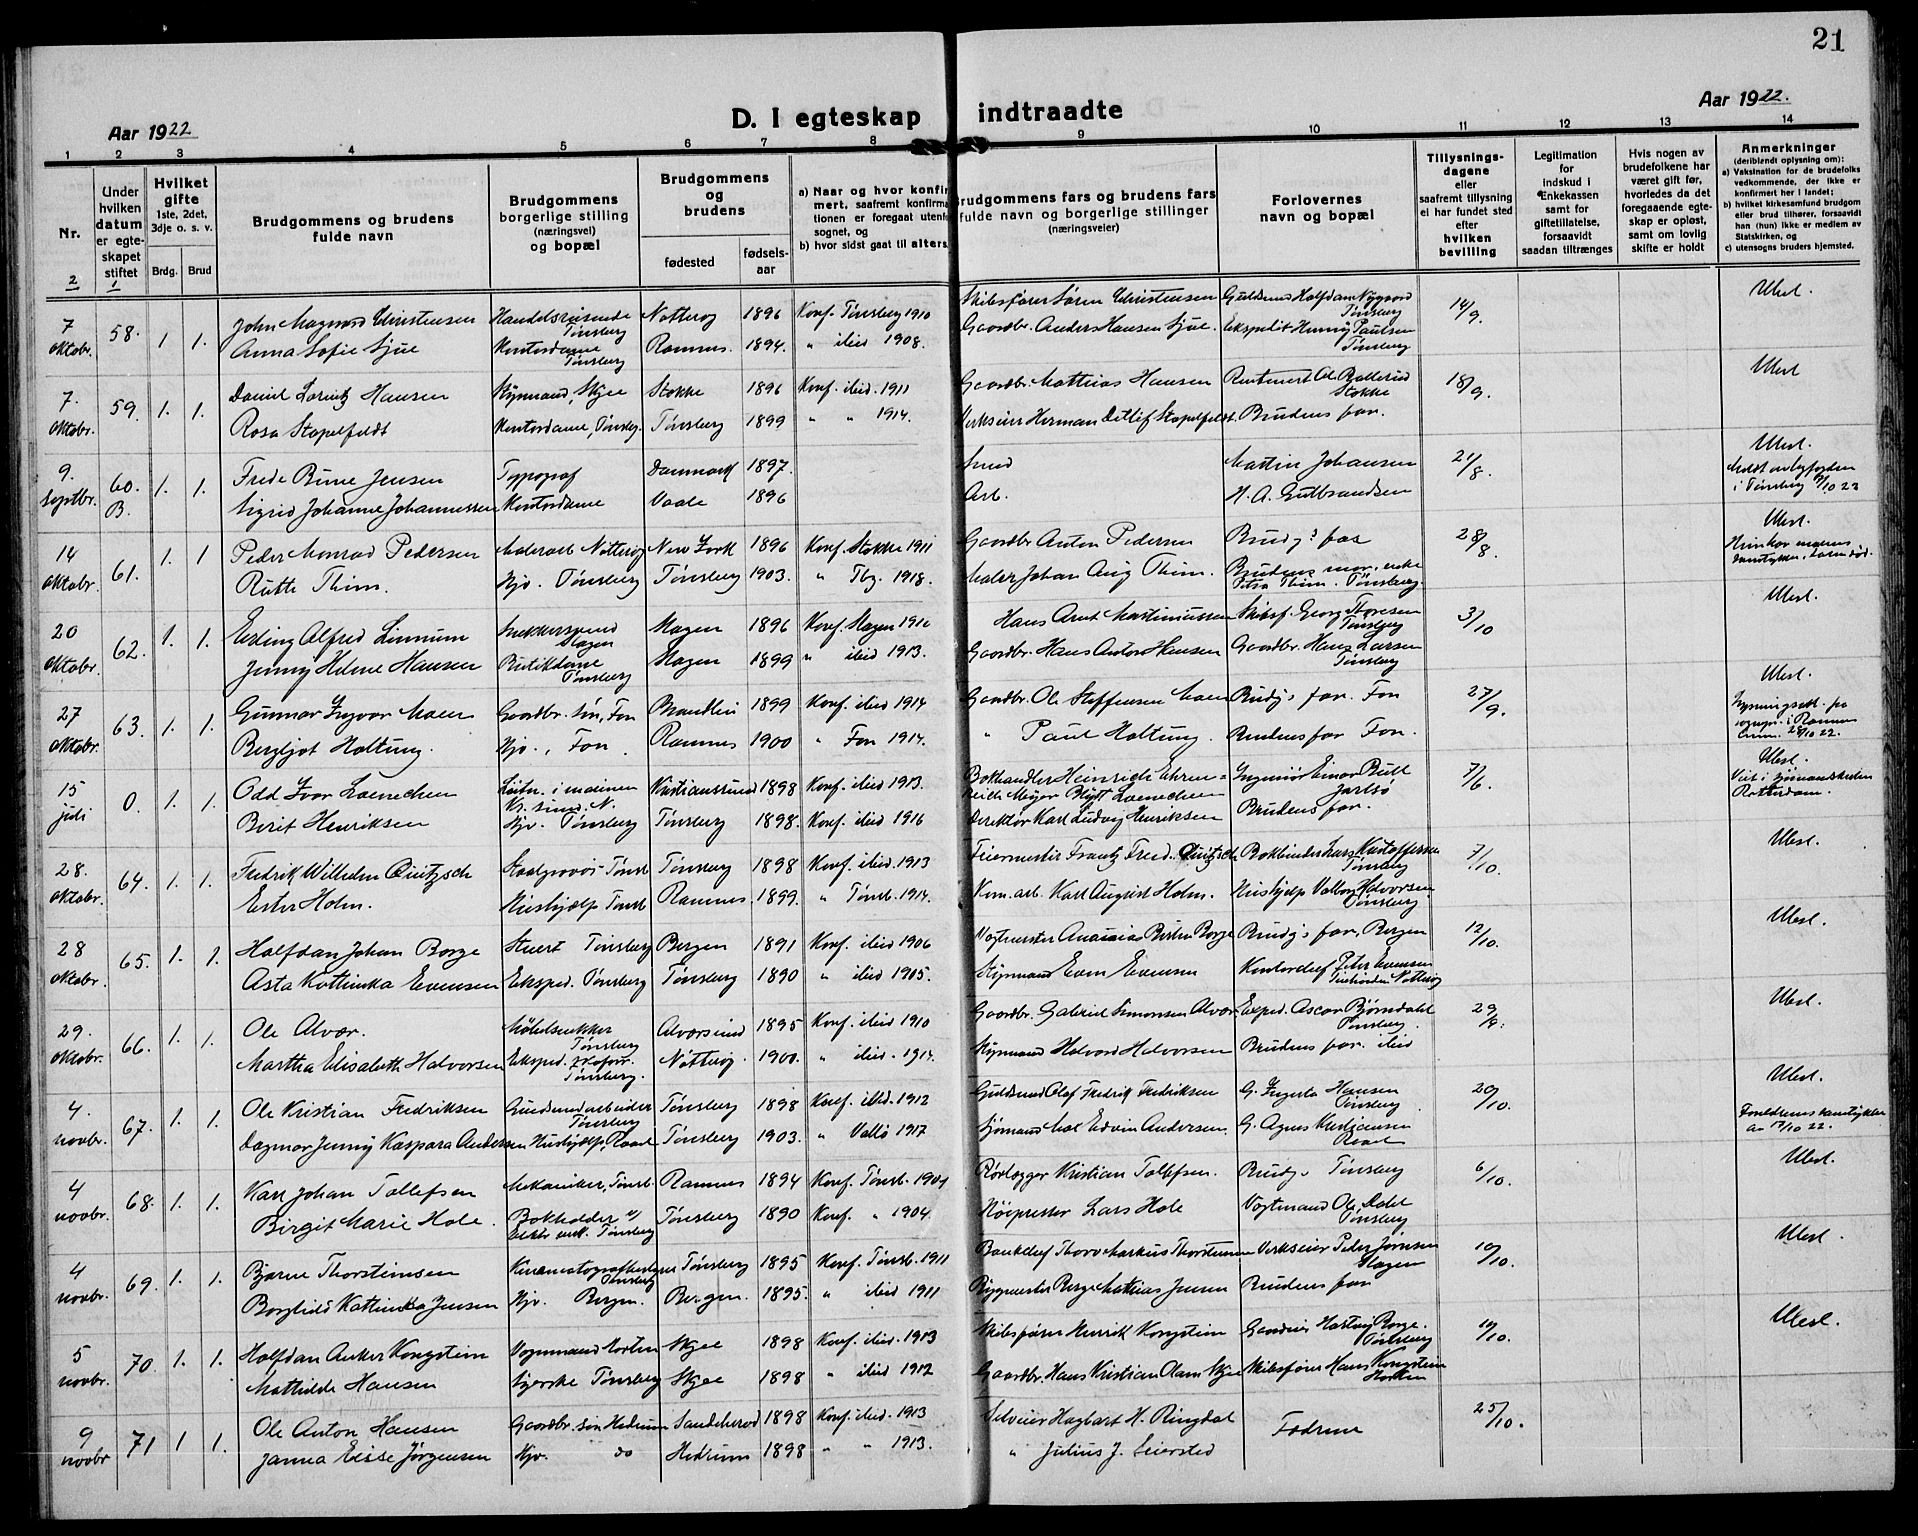 21
Aar 1922
D. I egteskap indtraadte
Aar 1922.
1 2 3 4 5 6 7 8 9 10 11 12 13 14
Nr.
2
Under hvilken datum er egteskapet stiftet
1
Hvilket gifte
1ste, 2det, 3dje o. s. v.
Brdg. Brud
Brudgommens og brudens fulde navn
Brudgommens borgerlige stilling (næringsvei) og bopæl
Brudgommens og brudens
fødested
fødsels-aar
a) Naar og hvor konfir
mert, saafremt konfirma
tionen er foregaat utenfo
sognet, og
b) hvor sidst gaat til alters
Brudgommens fars og brudens fars
fulde navn og borgerlige stillinger
(næringsveier)
Forlovernes navn og bopæl
Tillysnings-dagene
eller
saafremt tillysning
ei har fundet sted
efter
hvilken
bevilling
Legitimation
for
indskud i
Enkekassen
samt for
giftetillatelse,
forsaavidt
saadan tiltrænges
Hvis nogen av
brudefolkene har
været gift før,
hvorledes da det
foregaaende egte-
skap er opløst,
samt om lovlig
skifte er holdt
Anmerkninger
(deriblendt oplysning om):
a) Vaksination for de brudefolks
vedkommende, der ikke er
konfirmert her i landet;
b) hvilket kirkesamfund brudgom
eller brud tilhører, forsaavidt
han (hun) ikke er medlem av
Statskirken, og
c) utensogns bruders hjemsted.
7 oktobr. 58. 1 1. John Magnus Christensen Handelsreisende Tønsberg Nøtterøy 1896 Konf. Tønsberg 1910 Skibsfører Søren Christensen Guldsmed Halfdan Nygaard Tønsberg 14/9. Ubesl.
Anna Sofie Sjue Kontordame Tønsberg Ramnes. 1894. " ibid 1908. Gaardbr. Anders Hansen Sjue. Ekspedit Henny Paulsen Tønsberg
7. oktobr. 59. 1. 1. Daniel Lorentz Hansen Styrmand, Skjee Stokke 1896 Konf. ibid. 1911 Gaardbr. Mathias Hansen Stokke 18/9. Ubesl
Rosa Stapelfeldt Kontordame, Tønsbg. Tønsberg 1899 " " 1914. Verkseier Herman Detlef Stapelfeldt. Brudens far.
9. septbr. 60. B. 1. 1. Frede Rune Jensen Typograf Danmark 1897. Smed Martin Johansen 21/8. Ubesl.
Sigrid Johanne Johannessen Kontordame Vaale 1896 Arb. H. A. Gulbrandsen i Tønsberg
14 oktobr. 61. 1. 1 Peder Monrad Pedersen Malerarb. Nøtterøy New York 1896 Konf. Stokke 1911 Gaardbr. Anton Pedersen Brudg.s far 28/8. Ubesl.
Ruth Thim. Hjv. Tønsberg Tønsberg 1903. " Tbg. 1918. Maler Johan Aug Thim. Brudens mor, enke Petra Thim. Tønsberg.
20 oktobr. 62. 1. 1. Erling Alfred Linnum Snekkersvend Slagen Slagen 1896 Konf. Slagen 1910 Hans Arnt Martinussen Skibsf. Georg Thoresen Tønsberg 3/10 Ubesl.
Jenny Helene Hansen Butikdame Tønsberg Slagen 1899 " ibid 1913. Gaardbr. Hans Anton Hansen Gaardbr. Hans Larsen Tønsberg
27 oktobr. 63. 1. 1. Gunnar Ingvar Moen Gaardbr. søn, Fon 1899 Konf. ibid 1914 Gaardbr. Ole Steffensen Moen Brudg.s far. Fon 27/9. Ubesl.
Bergljot Holtung. Hjv., Fon Ramnes 1900 " Fon 1914. " Paul Holtung. Brudens far Fon.
15 juli 0. 1. 1. Odd Ivar Loennechen Løitn. i marinen Kr. sund. N. Kristianssund 1898 Konf. ibid 1913. Bokhandler Heinrich Ehren=reich Meyer Blydt Loennechen Ingeniør Einar Bull Jarlsø 7/6. Ubesl. Viet i sjømandskirken Rotterdam.
Berit Henriksen Hjv. Tønsberg Tønsberg 1898. Konf. ibid 1916 Direktør Karl Ludvig Henriksen Brudens far.
28. oktobr. 64. 1. 1. Fredrik Wilhelm Quitzsch Tønsb Tønsberg 1898 Konf. ibid. 1913 Feiermester Frantz Fred. Quitzsch Bokbinder Lars Kristoffersen Tønsberg 7/10. Ubesl.
Ester Holm. Hushjælp Tønsb Ramnes 1899. " Tønsb. 1914. Kom. arb. Karl August Holm. Hushjelp Valborg Halvorsen Tønsberg
28 oktobr. 65. 1. 1. Halfdan Johan Borge Stuert Tønsberg Bergen 1891 Konf. ibid 1906 Vogtmester Ananias Borge Brudg.s far, Bergen 12/10. Ubesl.
Asta Kattinka Evensen Eksped. Tønsberg Tønsberg 1890 " ibid 1905. Styrmand Even Evensen Kontorchef Peter Evensen Nøtterøy
29. oktobr. 66. 1. 1. Ole Alvær. Møbelsnekker Tønsberg Alversund 1895 Konf. ibid 1910 Gaardbr. Gabriel Simonsen Alvær Exped. Oscar Bjørndalet Tønsberg 29/9. Ubesl.
Martha Elisabeth Halvorsen Eksped. Tønsberg. Nøtterøy 1900. " ibid. 1914. Styrmand Halvard Halvorsen Brudens far ibid
4. novbr. 67. 1. 1. Ole Kristian Fredriksen Guldsmedarbeider Tønsberg Tønsberg 1898 Konf. ibid. 1912 Guldsmed Olaf Fredrik Fredriksen G. Ingerta Hansen Tønsberg 20/10. Ubesl.
Dagmar Jenny Kaspara Andersen Hushjælp, Roael Tønsberg 1903. " Vallø 1917 Sjømand Edvin Andersen. G. Agnes
4 novbr. 68. 1. 1. Karl Johan Tollefsen Mekaniker, Tønsb. Ramnes 1894 Konf. Tønsb. 1909 Rørlægger Kristian Tollefsen. Brudg.s Tønsberg 6/10. Ubesl.
Birgit Marie Hole. Bokholder v/ Elektr. verk. Tønsberg Tønsberg 1890 Konf. " 1904. Lars Hole Vogtmand Ole Dalet Tønsberg
4 novbr. 69. 1. 1. Bjarne Thorsteinsen Kinematografbestyrer Tønsberg Tønsberg 1895 Konf. Tønsb. 1911 Bankchef Thorv Markus Thorsteinsen Verkseier Peder Jørnsen Slagen 10/10. Ubesl.
Borghild Kattinka Jensen Hjv. Bergen. Bergen. 1895. " ibid 1911 Bygmester Berge Mathias Jensen Brudens far
5 novbr. 70. 1. 1. Halfdan Anker Kongstein Vognmand Horten Skjee 1898 Konf. ibid. 1913 Skibsfører Henrik Kongstein Gaardeier Hartvig Borge. Tønsberg 19/10. Ubesl.
Mathilde Hansen Syerske Tønsberg Skjee 1898 " ibid 1912 Gaardbr. Hans Kristian Olsen Skjee Skibsfører Hans Kongstein Horten
9 novbr 71 1 1. Ole Anton Hansen Gaardbr. søn Hedrum Sandeherred 1898 Konf. ibid. 1913 Selveier Hagbart H. Ringdal Fædrene 25/10.
Janna Elise Jørgensen Hjv. do Hedrum 1898 " " 1913. " Julius J. Seiersted